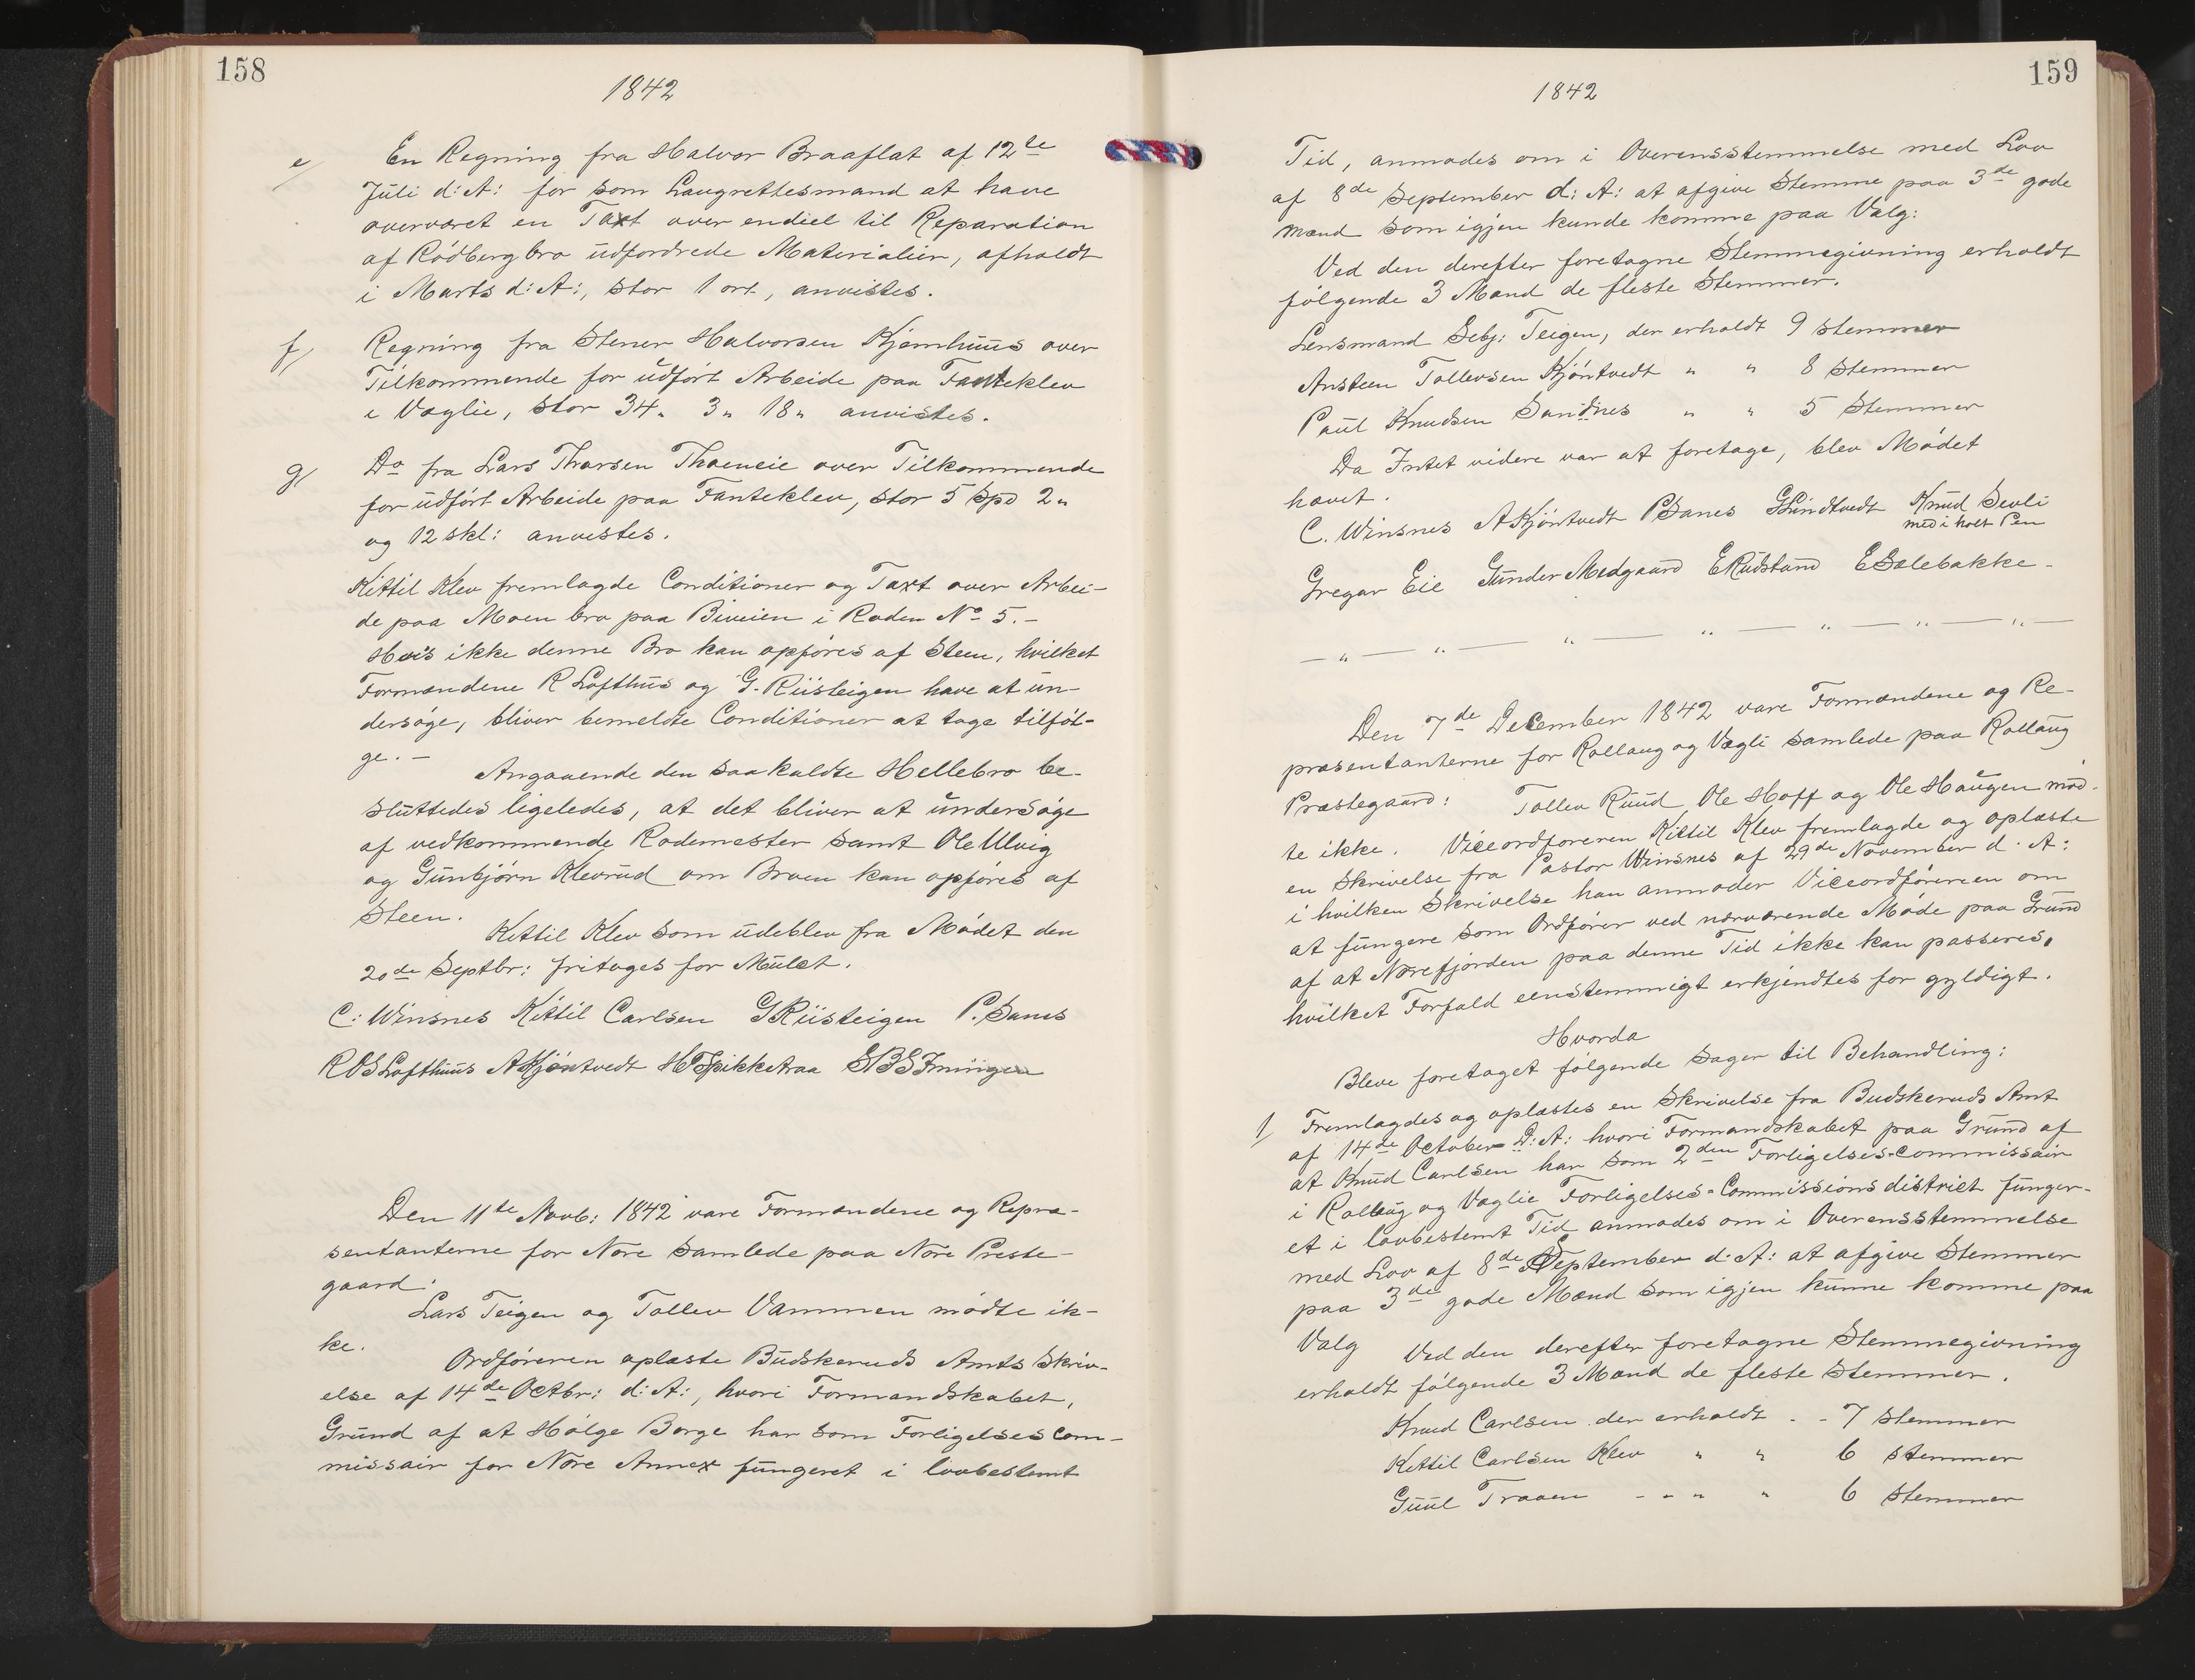 158
1842
e/ En Regning fra Halvor Braaflat af 12te
Juli d: A: for som Laugrettesmand at have
overværet en Taxt over endiel til Reparation
af Rödberg bro udfordrede Materialier, afholdt
i Marts d: A:, stor 1 ort, anvistes.
f/ Regning fra Stener Halvorsen Kjemhuus over
Tilkommende for udfört Arbeide paa Fanteklev
i Væglie, stor 34 „ 3 „ 18 „ anvistes.
g/ Do fra Lars Thorsen Thoeneie over Tilkommende
for udfört Arbeide paa Fanteklev, stor 5 Spd 2 „
og 12 skl: anvistes.
Kittil Klev fremlagde Conditioner og Taxt over Arbei-
de paa Moen bro paa Biveien i Roden No 5. -
Hvis ikke denne Bro kan opföres af Steen, hvilket
Formændene R Lofthus og G. Riisteigen have at un-
dersöge, bliver bemeldte Conditioner at tage tilföl-
ge. -
Angaaende den saakaldte Hellebro be-
sluttedes ligeledes, at det bliver at undersöge
af vedkommende Rodemester samt Ole Ulvig
og Gunbjörn Klevrud om Broen kan opföres af
Steen.
Kittil Klev som udeblev fra Mödet den
20de Septbr: fritages for Mulct.
C: Winsnes Kittil Carlsen G Riisteigen P. Sanes
R O S Lofthuus A Kjöntvedt H T Spikketraa
Den 11te Novb: 1842 vare Formændene og Repræ-
sentanterne for Nore samlede paa Nore Preste-
gaard:
Lars Teigen og Tollev Vammen mödte ik-
ke.
Ordföreren oplæste Budskeruds Amts Skriv-
else af 14de Octbr: d: A:, hvori Formandskabet,
Grund af at Holge Borge har som Forligelses Com-
missair for Nore Annex fungeret i lovbestemt
159
1842
Tid, anmodes om i Overensstemmelse med Lov
af 8de September d: A: at afgive Stemme paa 3de gode
Mænd som igjen kunde komme paa Valg:
Ved den derefter foretagne Stemmegivning erholdt
fölgende 3 Mænd de fleste Stemmer.
Lensmand Sebj: Teigen, der erholdt 9 Stemmer
Ansteen Tollevsen Kjöntvedt „ „ 8 Stemmer
Paul Knudsen Sandnes „ „ 5 Stemmer
Da Intet videre var at foretage, blev Mödet
hævet.
C. Winsnes A Kjöntvedt P Sanes G Lindtvedt Knud Sevli
med i holt Pen
Gregar Eie Gunder Medgaard E Rudstand E Sælebakke -
— „ — „ — „ — „ — „ — „ — „ —
Den 7de December 1842 vare Formændene og Re-
præsentanterne for Rollaug og Vægli samlede paa Rollaug
Præstegaard: Tollev Ruud, Ole Hoff og Ole Haugen möd-
te ikke. Viceordföreren Kittil Klev fremlagde og oplæste
en Skrivelse fra Pastor Winsnes af 29de November d. A:
i hvilken Skrivelse han anmoder Viceordföreren om
at fungere som Ordförer ved nærværende Möde paa Grund
af at Norefjorden paa denne Tid ikke kan passeres,
hvilket Forfald eenstemmigt erkjendtes for gyldigt.
Hvorda
Bleve foretaget fölgende Sager til Behandling:
1/ Fremlagdes og oplæstes en Skrivelse fra Budskeruds Amt
af 14de October D: A: hvori Formandskabet paa Grund af
at Knud Carlsen har som 2den Forligelses-Commissair
i Rollaug og Væglie Forligelses-Commissions district funger-
et i lovbestemt Tid anmodes om i Overensstemmelse
med Lov af 8de September d: A: at afgive Stemmer
paa 3de gode Mænd som igjen kunne komme paa
Valg Ved den derefter foretagne Stemmegivning
erholdt fölgende 3 Mænd de fleste Stemmer.
Knud Carlsen der erholdt - - 7 Stemmer
Kittil Carlsen Klev „ „ 6 Stemmer
Guul Traaen - - „ „ 6 Stemmer